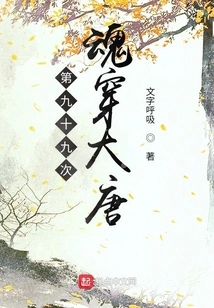 第九十九次
魂穿大唐
文字呼吸 ◎ 著
起